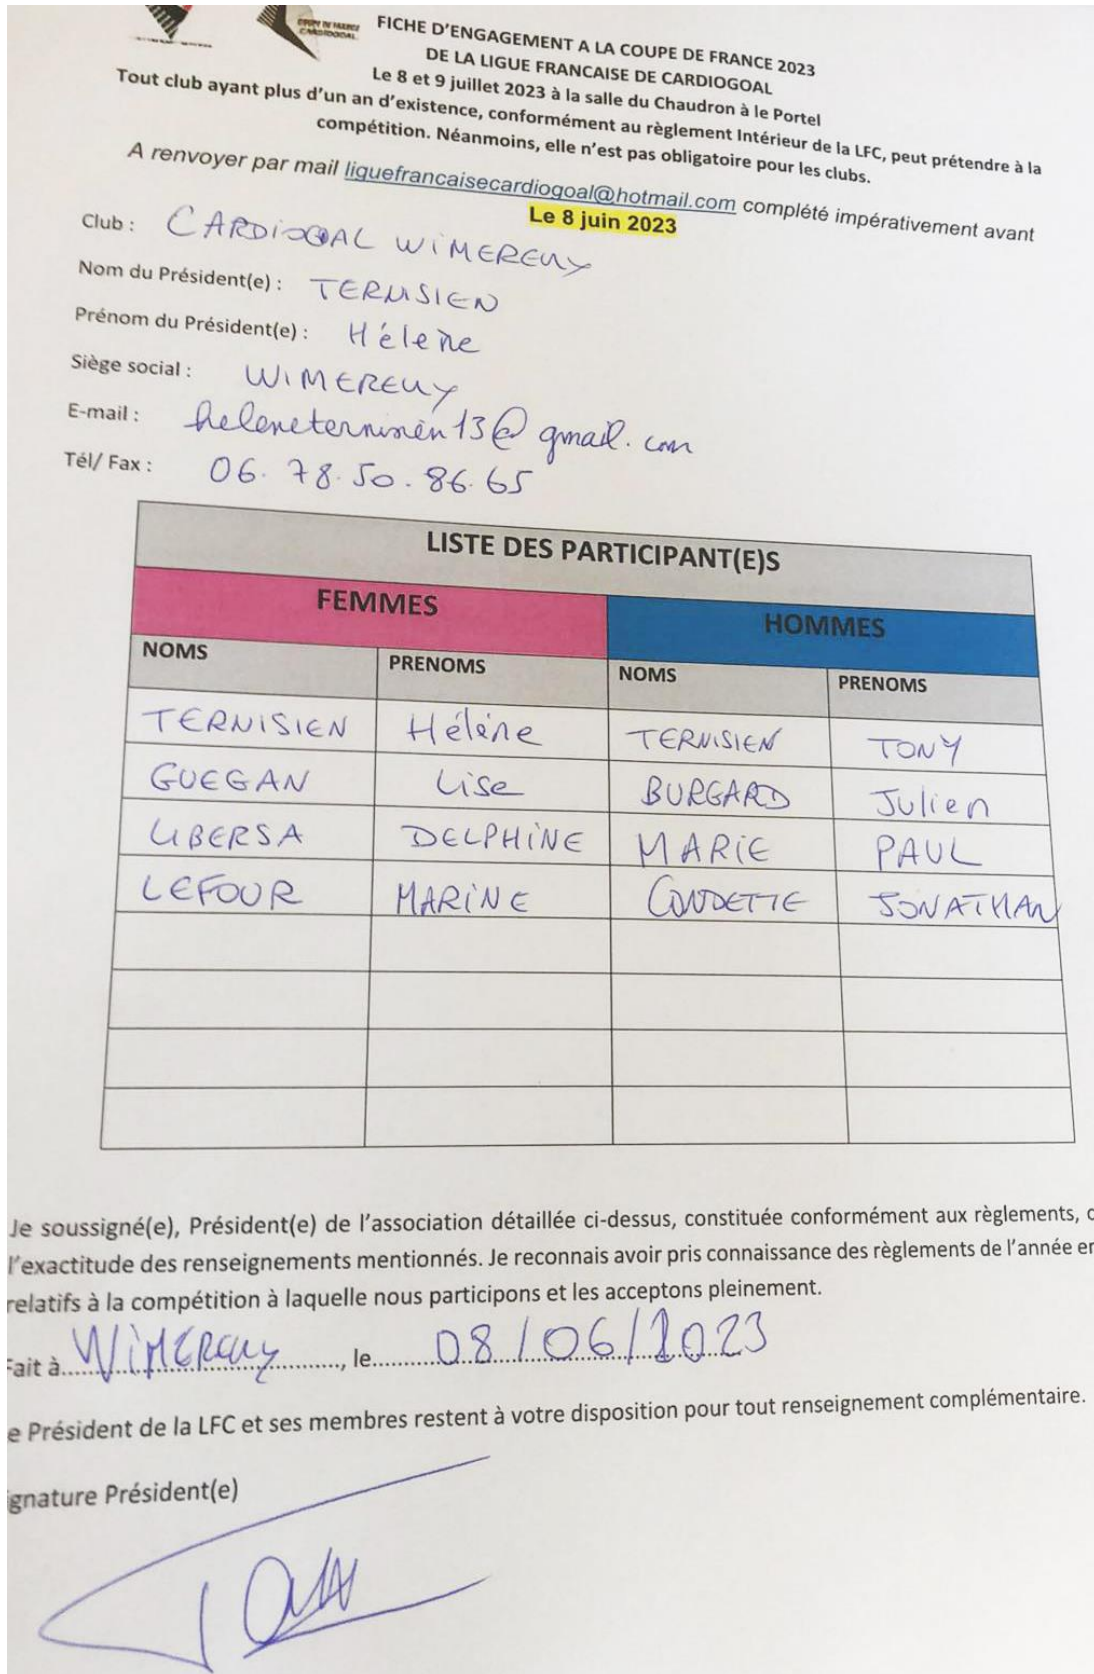 COUPE DE FRANCE
CARDIOGOAL
FICHE D'ENGAGEMENT A LA COUPE DE FRANCE 2023
DE LA LIGUE FRANCAISE DE CARDIOGOAL
Le 8 et 9 juillet 2023 à la salle du Chaudron à le Portel
Tout club ayant plus d'un an d'existence, conformément au règlement Intérieur de la LFC, peut prétendre à la
compétition. Néanmoins, elle n'est pas obligatoire pour les clubs.
A renvoyer par mail liguefrancaisecardiogoal@hotmail.com complété impérativement avant
Le 8 juin 2023
Club : CARDIOGOAL WIMEREUX
Nom du Président(e) : TERNISIEN
Prénom du Président(e) : Hélène
Siège social : WIMEREUX
E-mail : heleneternisien13@gmail.com
Tél/ Fax : 06.78.50.86.65
LISTE DES PARTICIPANT(E)S
FEMMES HOMMES
NOMS PRENOMS NOMS PRENOMS
TERNISIEN Hélène TERNISIEN TONY
GUEGAN Lise BURGARD Julien
LIBERSA DELPHINE MARIE PAUL
LEFOUR MARINE COUDETTE JONATHAN
Je soussigné(e), Président(e) de l'association détaillée ci-dessus, constituée conformément aux règlements,
l'exactitude des renseignements mentionnés. Je reconnais avoir pris connaissance des règlements de l'année en
relatifs à la compétition à laquelle nous participons et les acceptons pleinement.
Fait à WIMEREUX, le 08/06/2023
e Président de la LFC et ses membres restent à votre disposition pour tout renseignement complémentaire.
ignature Président(e)